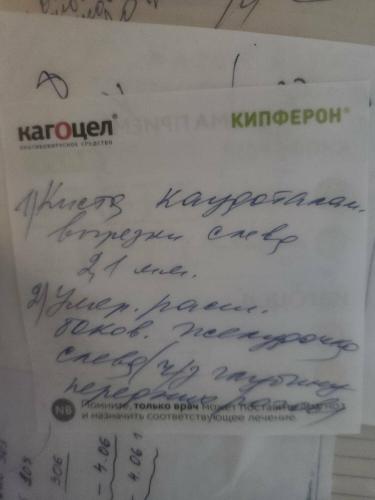 кагоцел®
ПРОТИВОВИРУСНОЕ СРЕДСТВО
КИПФЕРОН®
1) Киста каудоталам.
вырезки слева
2,1 мм.
2) Умер. расш.
боков. желудочка
слева (ч/з глубину
передних рогов
NB Помните, только врач может поставить диагноз
и назначить соответствующее лечение.
203
306
- 4.06
- 4.06